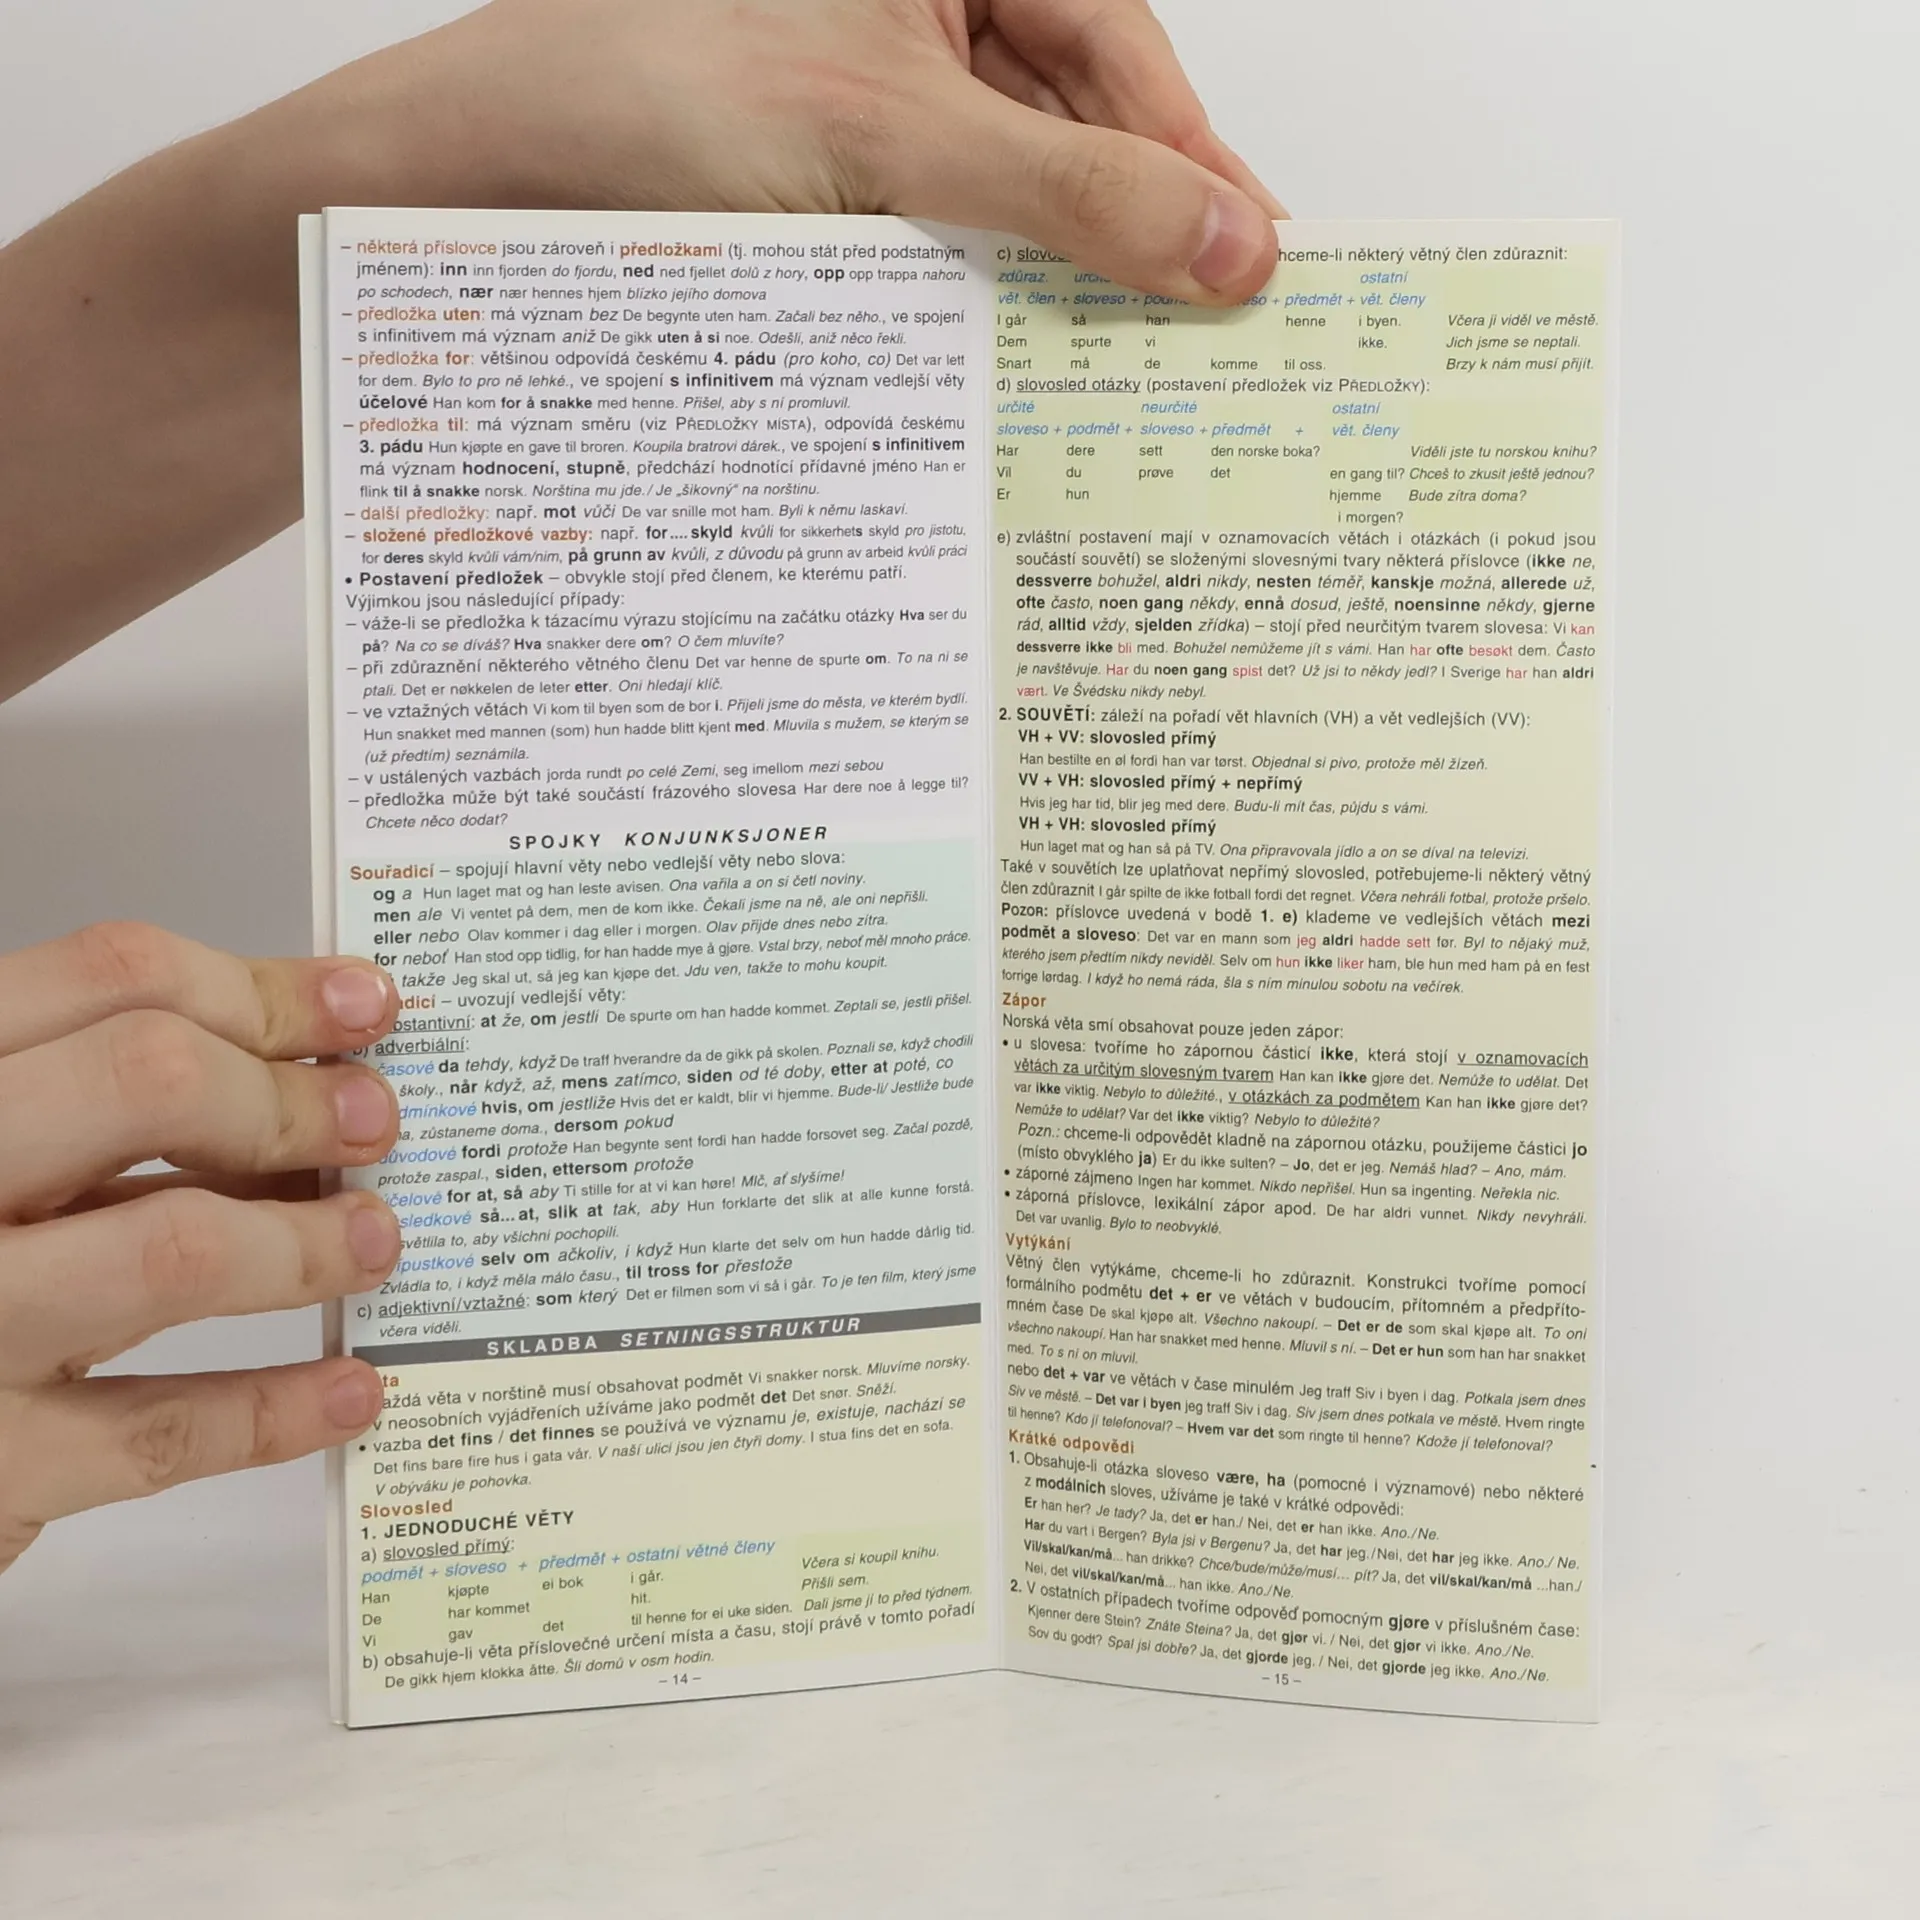 – některá příslovce jsou zároveň i předložkami (tj. mohou stát před podstatným
jménem): inn inn fjorden do fjordu, ned ned fjellet dolů z hory, opp opp trappa nahoru
po schodech, nær nær hennes hjem blízko jejího domova
– předložka uten: má význam bez De begynte uten ham. Začali bez něho., ve spojení
s infinitivem má význam aniž De gikk uten å si noe. Odešli, aniž něco řekli.
– předložka for: většinou odpovídá českému 4. pádu (pro koho, co) Det var lett
for dem. Bylo to pro ně lehké., ve spojení s infinitivem má význam vedlejší věty
účelové Han kom for å snakke med henne. Přišel, aby s ní promluvil.
– předložka til: má význam směru (viz PŘEDLOŽKY MÍSTA), odpovídá českému
3. pádu Hun kjøpte en gave til broren. Koupila bratrovi dárek., ve spojení s infinitivem
má význam hodnocení, stupně, předchází hodnotící přídavné jméno Han er
flink til å snakke norsk. Norština mu jde./ Je „šikovný“ na norštinu.
– další předložky: např. mot vůči De var snille mot ham. Byli k němu laskaví.
– složené předložkové vazby: např. for.... skyld kvůli for sikkerhets skyld pro jistotu,
for deres skyld kvůli vám/nim, på grunn av kvůli, z důvodu på grunn av arbeid kvůli práci
• Postavení předložek – obvykle stojí před členem, ke kterému patří.
Výjimkou jsou následující případy:
– váže-li se předložka k tázacímu výrazu stojícímu na začátku otázky Hva ser du
på? Na co se díváš? Hva snakker dere om? O čem mluvíte?
– při zdůraznění některého větného členu Det var henne de spurte om. To na ni se
ptali. Det er nøkkelen de leter etter. Oni hledají klíč.
– ve vztažných větách Vi kom til byen som de bor i. Přijeli jsme do města, ve kterém bydlí.
Hun snakket med mannen (som) hun hadde blitt kjent med. Mluvila s mužem, se kterým se
(už předtím) seznámila.
– v ustálených vazbách jorda rundt po celé Zemi, seg imellom mezi sebou
– předložka může být také součástí frázového slovesa Har dere noe å legge til?
Chcete něco dodat?
SPOJKY KONJUNKSJONER
Souřadicí – spojují hlavní věty nebo vedlejší věty nebo slova:
og a Hun laget mat og han leste avisen. Ona vařila a on si četl noviny.
men ale Vi ventet på dem, men de kom ikke. Čekali jsme na ně, ale oni nepřišli.
eller nebo Olav kommer i dag eller i morgen. Olav přijde dnes nebo zítra.
for neboť Han stod opp tidlig, for han hadde mye å gjøre. Vstal brzy, neboť měl mnoho práce.
takže Jeg skal ut, så jeg kan kjøpe det. Jdu ven, takže to mohu koupit.
adicí – uvozují vedlejší věty:
ostantivní: at že, om jestli De spurte om han hadde kommet. Zeptali se, jestli přišel.
b) adverbiální:
časové da tehdy, když De traff hverandre da de gikk på skolen. Poznali se, když chodili
školy., når když, až, mens zatímco, siden od té doby, etter at poté, co
dmínkové hvis, om jestliže Hvis det er kaldt, blir vi hjemme. Bude-li/ Jestliže bude
na, zůstaneme doma., dersom pokud
důvodové fordi protože Han begynte sent fordi han hadde forsovet seg. Začal pozdě,
protože zaspal., siden, ettersom protože
účelové for at, så aby Ti stille for at vi kan høre! Mlč, ať slyšíme!
sledkové så... at, slik at tak, aby Hun forklarte det slik at alle kunne forstå.
světlila to, aby všichni pochopili.
ípustkové selv om ačkoliv, i když Hun klarte det selv om hun hadde dårlig tid.
Zvládla to, i když měla málo času., til tross for přestože
c) adjektivní/vztažné: som který Det er filmen som vi så i går. To je ten film, který jsme
včera viděli.
SKLADBA SETNINGSSTRUKTUR
ta
aždá věta v norštině musí obsahovat podmět Vi snakker norsk. Mluvíme norsky.
v neosobních vyjádřeních užíváme jako podmět det Det snør. Sněží.
• vazba det fins / det finnes se používá ve významu je, existuje, nachází se
Det fins bare fire hus i gata vår. V naší ulici jsou jen čtyři domy. I stua fins det en sofa.
V obýváku je pohovka.
Slovosled
1. JEDNODUCHÉ VĚTY
a) slovosled přímý:
podmět + sloveso + předmět + ostatní větné členy
Han kjøpte ei bok i går. Včera si koupil knihu.
De har kommet hit. Přišli sem.
Vi gav det til henne for ei uke siden. Dali jsme jí to před týdnem.
b) obsahuje-li věta příslovečné určení místa a času, stojí právě v tomto pořadí
De gikk hjem klokka åtte. Šli domů v osm hodin.
– 14 –
c) hceme-li některý větný člen zdůraznit:
zdůraz. ostatní
vět. člen + sloveso + + předmět + vět. členy
I går så han henne i byen. Včera ji viděl ve městě.
Dem spurte vi ikke. Jich jsme se neptali.
Snart må de komme til oss. Brzy k nám musí přijít.
d) slovosled otázky (postavení předložek viz PŘEDLOŽKY):
určité neurčité ostatní
sloveso + podmět + sloveso + předmět + vět. členy
Har dere sett den norske boka? Viděli jste tu norskou knihu?
Vil du prøve det en gang til? Chceš to zkusit ještě jednou?
Er hun hjemme Bude zítra doma?
i morgen?
e) zvláštní postavení mají v oznamovacích větách i otázkách (i pokud jsou
součástí souvětí) se složenými slovesnými tvary některá příslovce (ikke ne,
dessverre bohužel, aldri nikdy, nesten téměř, kanskje možná, allerede už,
ofte často, noen gang někdy, ennå dosud, ještě, noensinne někdy, gjerne
rád, alltid vždy, sjelden zřídka) – stojí před neurčitým tvarem slovesa: Vi kan
dessverre ikke bli med. Bohužel nemůžeme jít s vámi. Han har ofte besøkt dem. Často
je navštěvuje. Har du noen gang spist det? Už jsi to někdy jedl? I Sverige har han aldri
vært. Ve Švédsku nikdy nebyl.
2. SOUVĚTÍ: záleží na pořadí vět hlavních (VH) a vět vedlejších (VV):
VH + VV: slovosled přímý
Han bestilte en øl fordi han var tørst. Objednal si pivo, protože měl žízeň.
VV + VH: slovosled přímý + nepřímý
Hvis jeg har tid, blir jeg med dere. Budu-li mít čas, půjdu s vámi.
VH + VH: slovosled přímý
Hun laget mat og han så på TV. Ona připravovala jídlo a on se díval na televizi.
Také v souvětích lze uplatňovat nepřímý slovosled, potřebujeme-li některý větný
člen zdůraznit I går spilte de ikke fotball fordi det regnet. Včera nehráli fotbal, protože pršelo.
POZOR: příslovce uvedená v bodě 1. e) klademe ve vedlejších větách mezi
podmět a sloveso: Det var en mann som jeg aldri hadde sett før. Byl to nějaký muž,
kterého jsem předtím nikdy neviděl. Selv om hun ikke liker ham, ble hun med ham på en fest
forrige lørdag. I když ho nemá ráda, šla s ním minulou sobotu na večírek.
Zápor
Norská věta smí obsahovat pouze jeden zápor:
• u slovesa: tvoříme ho zápornou částicí ikke, která stojí v oznamovacích
větách za určitým slovesným tvarem Han kan ikke gjøre det. Nemůže to udělat. Det
var ikke viktig. Nebylo to důležité., v otázkách za podmětem Kan han ikke gjøre det?
Nemůže to udělat? Var det ikke viktig? Nebylo to důležité?
Pozn.: chceme-li odpovědět kladně na zápornou otázku, použijeme částici jo
(místo obvyklého ja) Er du ikke sulten? – Jo, det er jeg. Nemáš hlad? – Ano, mám.
• záporné zájmeno Ingen har kommet. Nikdo nepřišel. Hun sa ingenting. Neřekla nic.
• záporná příslovce, lexikální zápor apod. De har aldri vunnet. Nikdy nevyhráli.
Det var uvanlig. Bylo to neobvyklé.
Vytýkání
Větný člen vytýkáme, chceme-li ho zdůraznit. Konstrukci tvoříme pomocí
formálního podmětu det + er ve větách v budoucím, přítomném a předpříto-
mném čase De skal kjøpe alt. Všechno nakoupí. – Det er de som skal kjøpe alt. To oni
všechno nakoupí. Han har snakket med henne. Mluvil s ní. – Det er hun som han har snakket
med. To s ní on mluvil.
nebo det + var ve větách v čase minulém Jeg traff Siv i byen i dag. Potkala jsem dnes
Siv ve městě. – Det var i byen jeg traff Siv i dag. Siv jsem dnes potkala ve městě. Hvem ringte
til henne? Kdo jí telefonoval? – Hvem var det som ringte til henne? Kdože jí telefonoval?
Krátké odpovědi
1. Obsahuje-li otázka sloveso være, ha (pomocné i významové) nebo některé
z modálních sloves, užíváme je také v krátké odpovědi:
Er han her? Je tady? Ja, det er han./ Nei, det er han ikke. Ano./Ne.
Har du vart i Bergen? Byla jsi v Bergenu? Ja, det har jeg./Nei, det har jeg ikke. Ano./ Ne.
Vil/skal/kan/må... han drikke? Chce/bude/může/musí... pít? Ja, det vil/skal/kan/må ...han./
Nei, det vil/skal/kan/må... han ikke. Ano./Ne.
2. V ostatních případech tvoříme odpověď pomocným gjøre v příslušném čase:
Kjenner dere Stein? Znáte Steina? Ja, det gjør vi. / Nei, det gjør vi ikke. Ano./Ne.
Sov du godt? Spal jsi dobře? Ja, det gjorde jeg. / Nei, det gjorde jeg ikke. Ano./Ne.
– 15 –